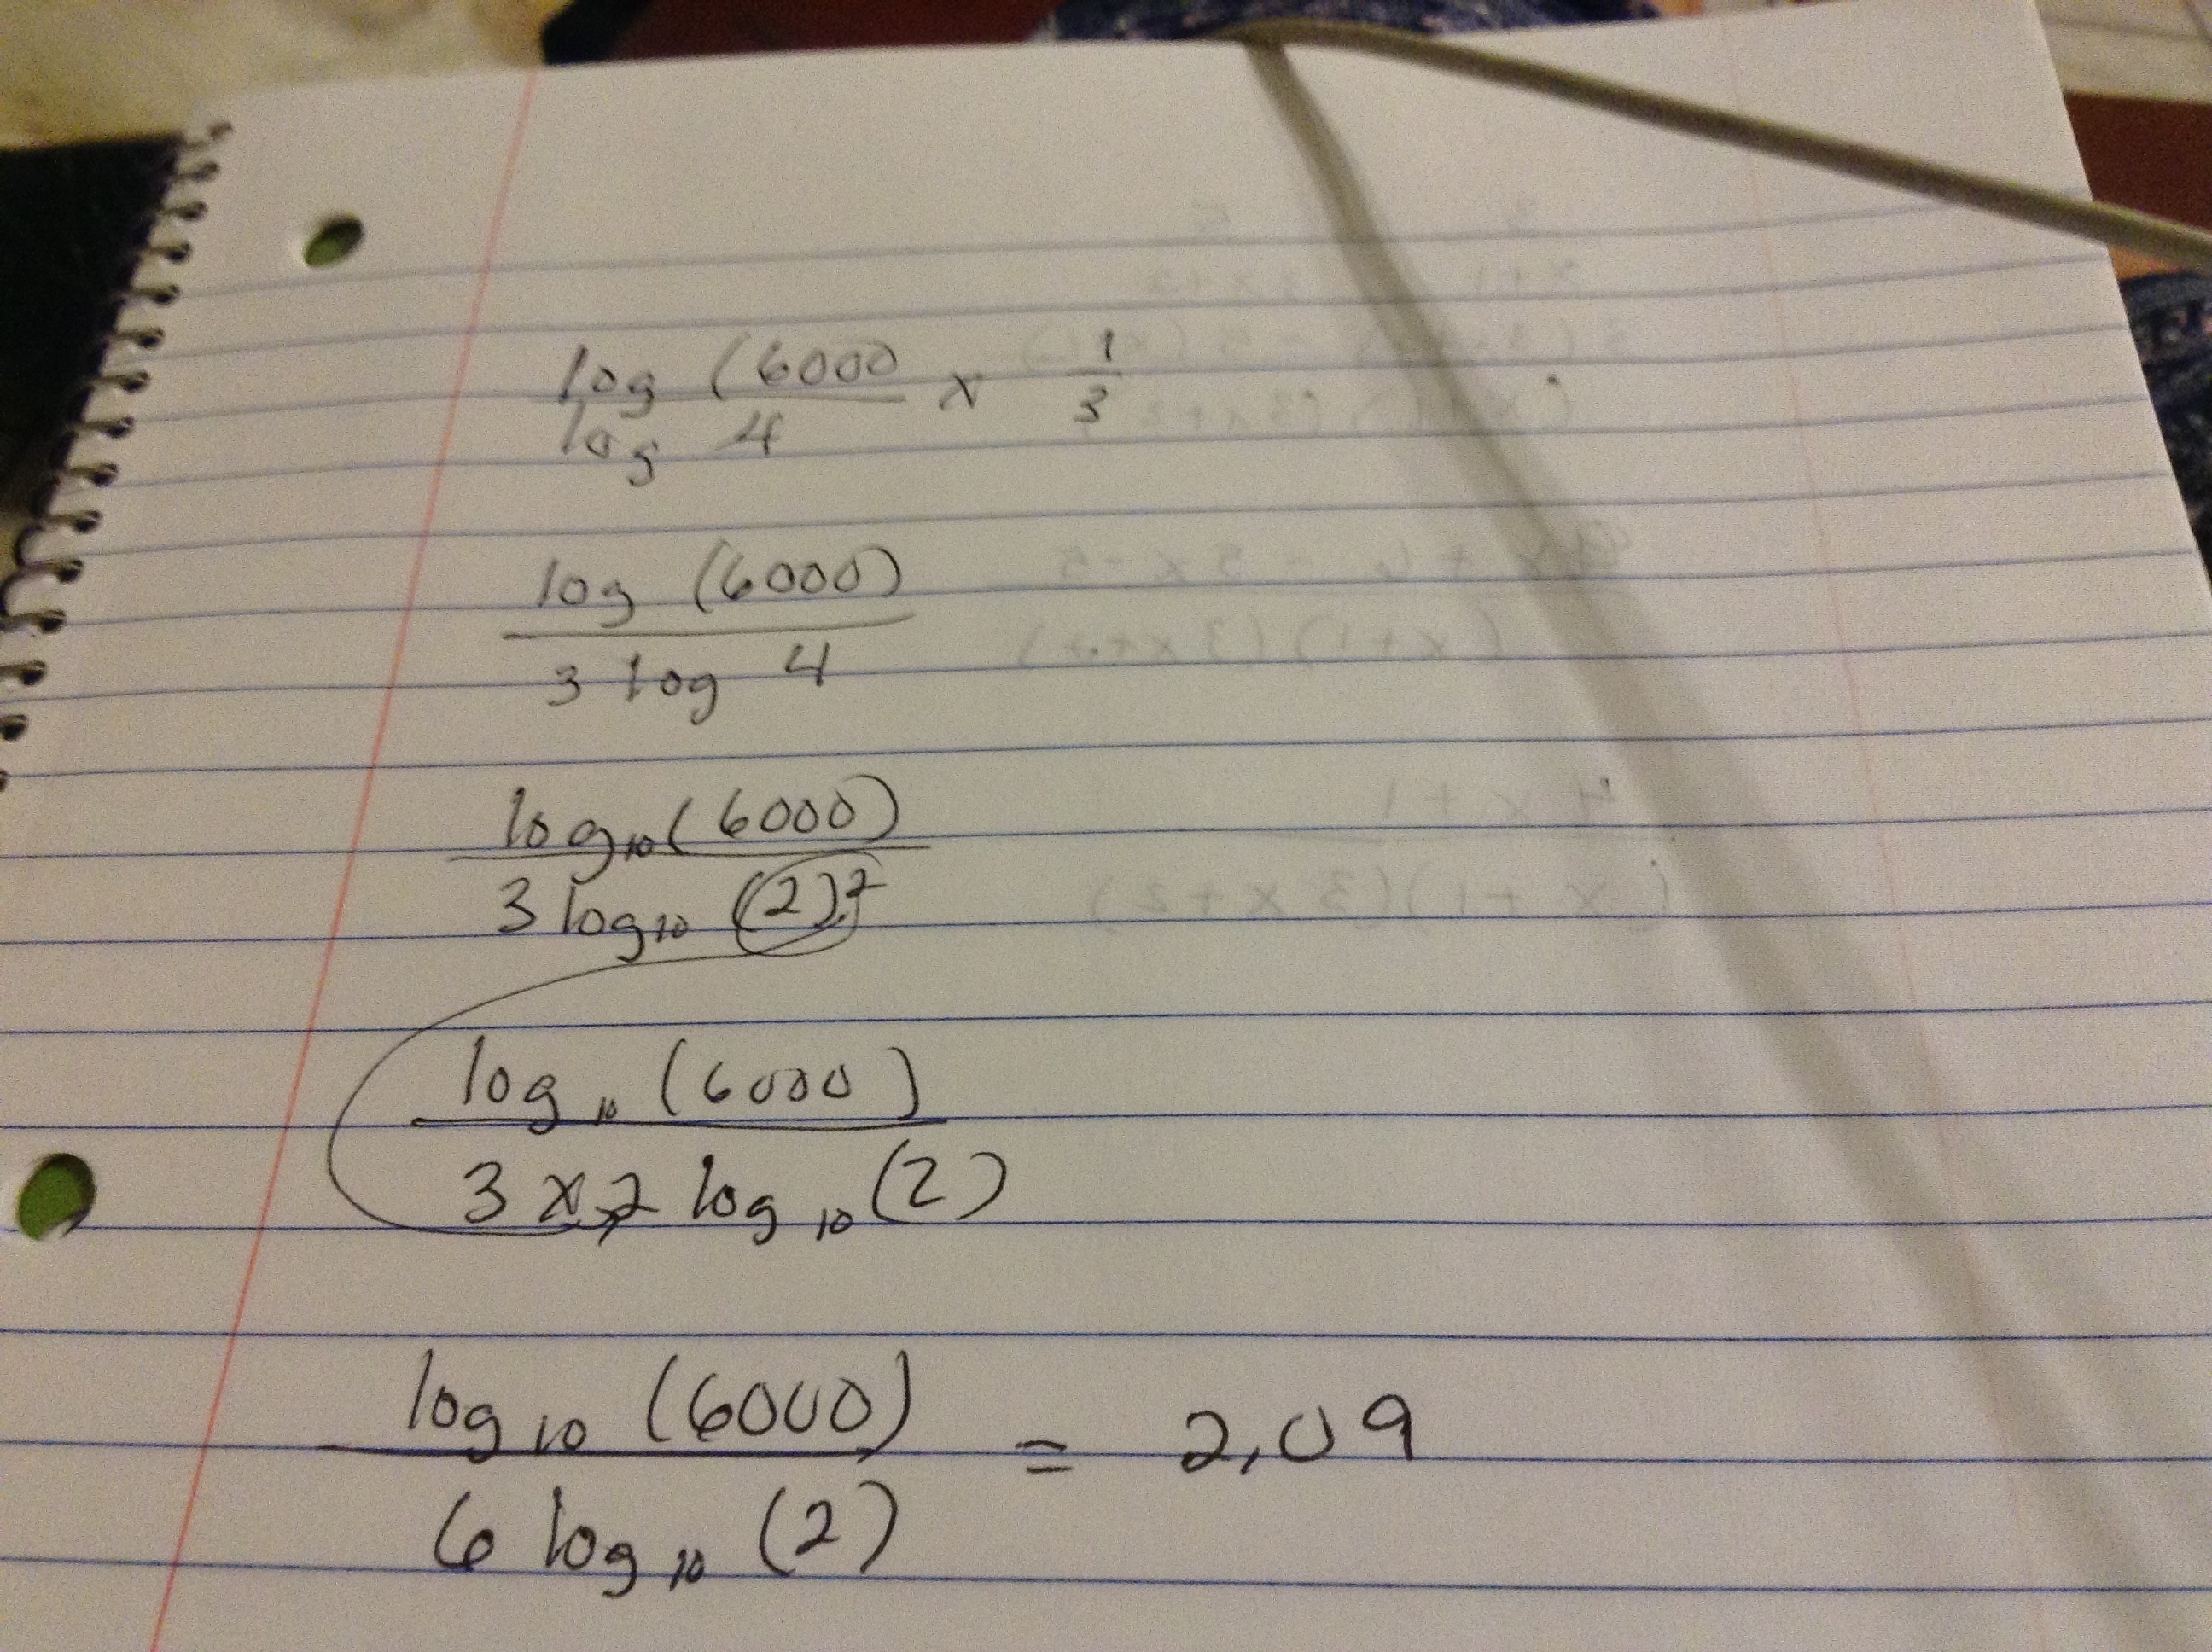 log (6000 x 1
log 4 3
log (6000)
3 log 4
log10 (6000)
3 log10 (2)²
log10 (6000)
3 x 2 log10 (2)
log10 (6000) = 2.09
6 log10 (2)